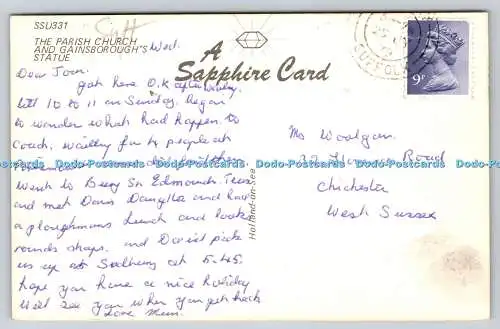 SSU331
THE PARISH CHURCH
AND GAINSBOROUGH'S
STATUE
Wed.
A
Sapphire Card
9P
SUFFOLK
Dear Joan.
got here O.K after waiting
till 10 to 11 on Sunday. Began
to wonder what had happen. to
coach. waiting for to people at
went to Bury St Edmonds Tues
and met Doris Daughter and had
a ploughmans lunch and looked
rounds shops. and David pick
us up at Sudbury at 5.45.
hope you have a nice holiday
Will see you when you get back
Love Mum.
Holland-on-Sea
Ms Woolgar.
32 Road
Chichester
West Sussex
Dodo-Postcards Dodo-Postcards Dodo-Postcards Dodo-Postcards Dodo-Postcards